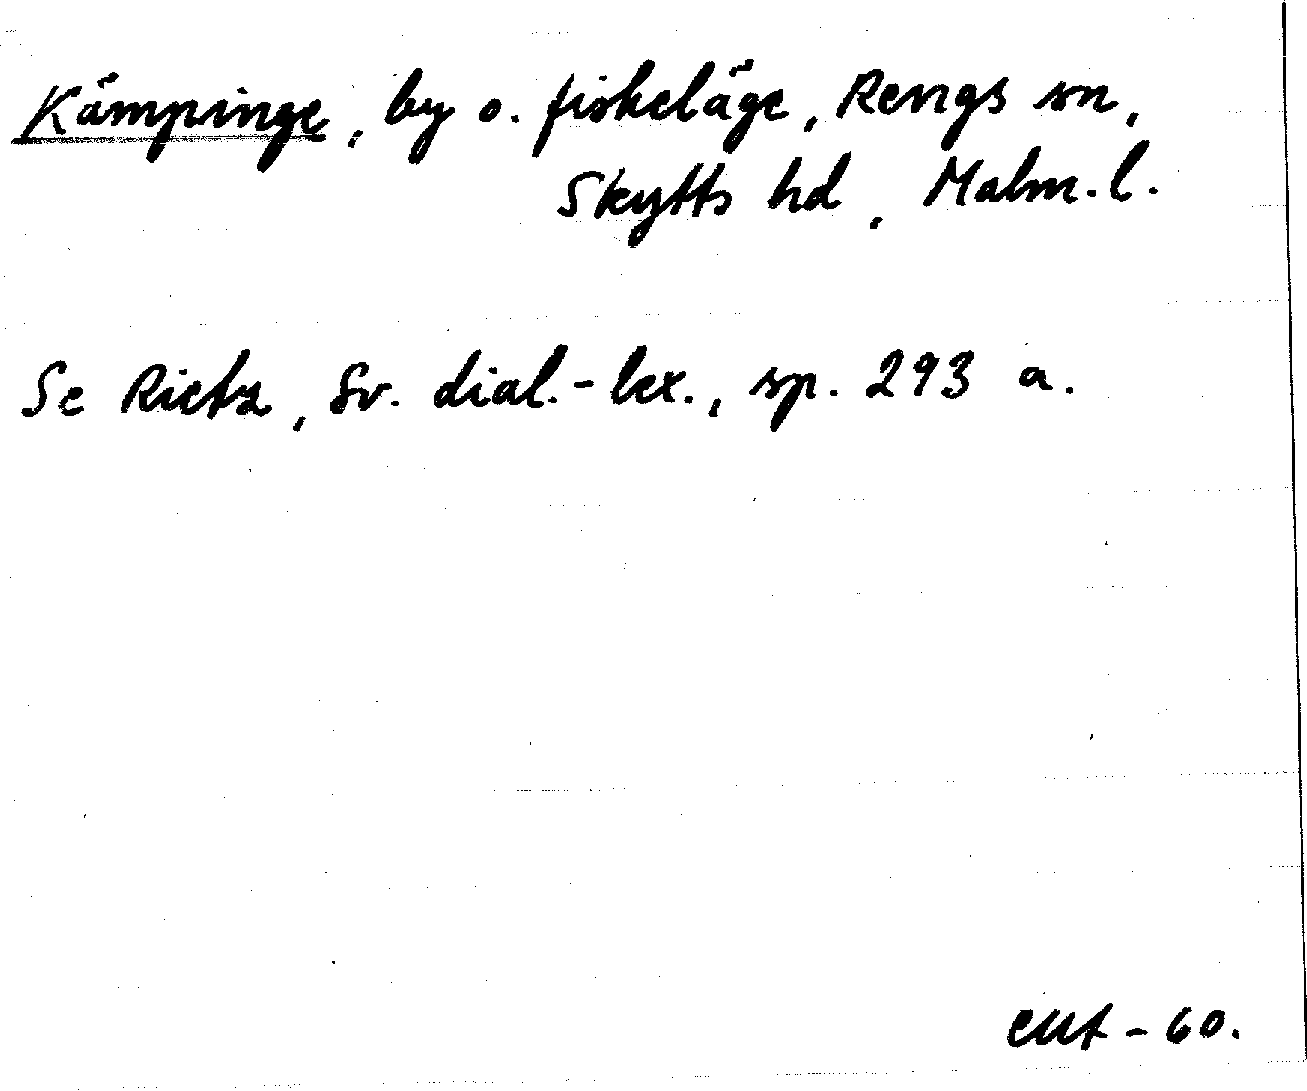 Kämpinge, by o. fiskeläge, Rengs sn,
Skytts hd, Malm. l.
Se Rietz, Sv. dial.-lex., sp. 293 a.
- 60.